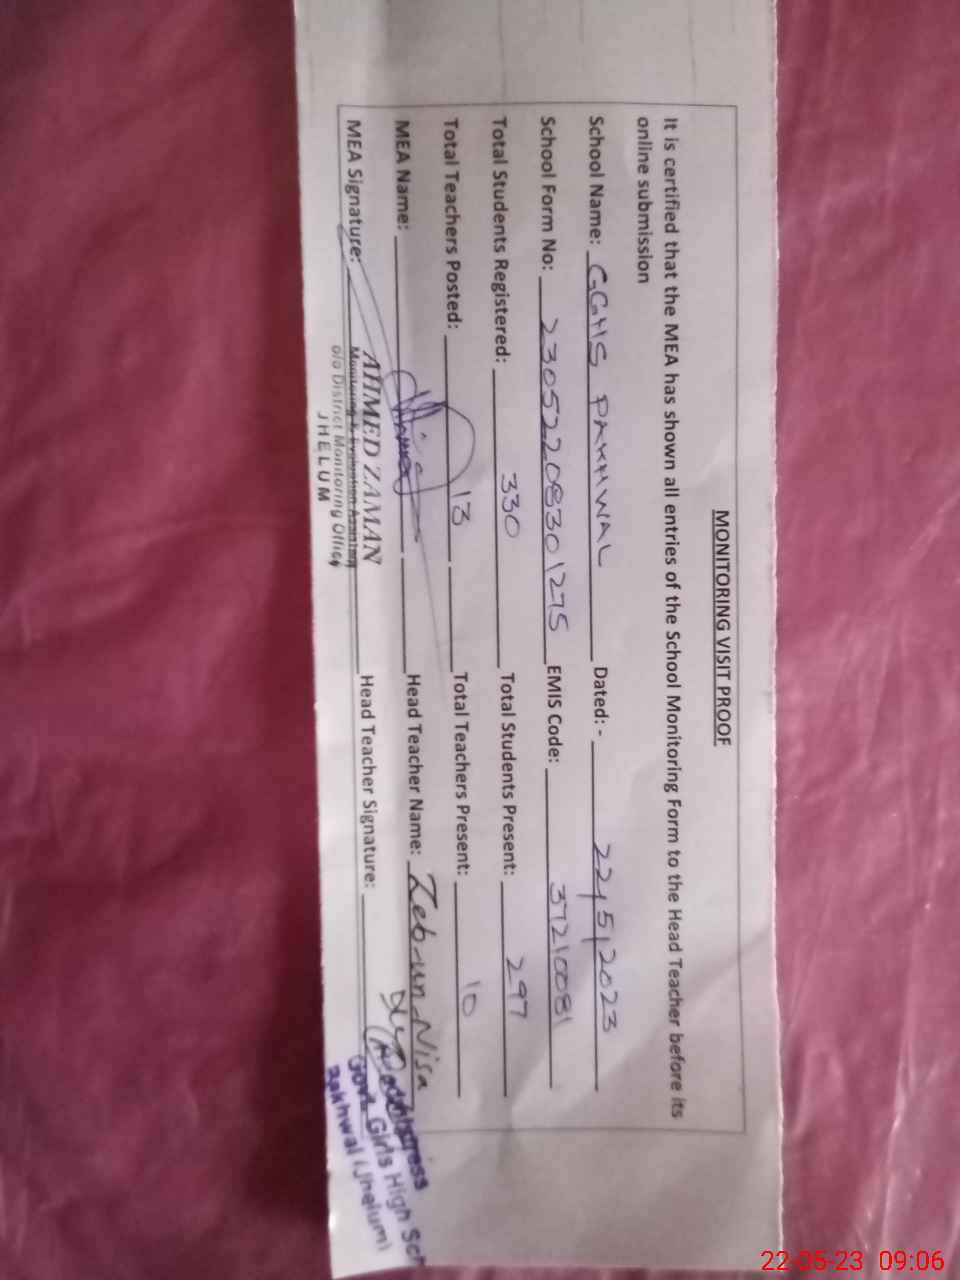 MONITORING VISIT PROOF
It is certified that the MEA has shown all entries of the School Monitoring Form to the Head Teacher before its
online submission
School Name: GGHS PAKHWAL Dated: - 22/5/2023
School Form No: 23052208301275 EMIS Code: 37210081
Total Students Registered: 330 Total Students Present: 297
Total Teachers Posted: 13 Total Teachers Present: 10
MEA Name: Head Teacher Name: Zeb-un-Nisa
MEA Signature: Head Teacher Signature:
AHMED ZAMAN
Monitoring & Evaluation Assistant
o/o District Monitoring Office
JHELUM
Headmistress
Govt. Girls High Sch
Pakhwal (Jhelum)
22-05-23 09:06